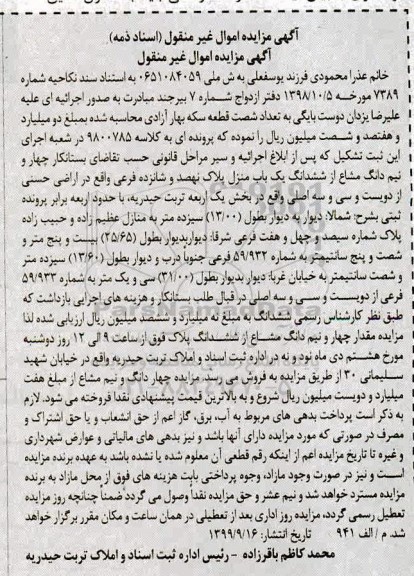 آگهی مزایده اموال غیر منقول (اسناد ذمه)
آگهی مزایده اموال غیر منقول
خانم عذرا محمودی فرزند یوسفعلی به ش ملی ۰۶۵۱۰۸۴۰۵۹ به استناد سند نکاحیه شماره
۷۳۸۹ مورخه ۱۳۹۸/۱۰/۵ دفتر ازدواج شماره ۷ بیرجند مبادرت به صدور اجرائیه ای علیه
علیرضا یزدان دوست بایگی به تعداد شصت قطعه سکه بهار آزادی محاسبه شده بمبلغ دو میلیارد
و هفتصد و شصت میلیون ریال را نموده که پرونده ای به کلاسه ۹۸۰۰۷۸۵ در شعبه اجرای
این ثبت تشکیل که پس از ابلاغ اجرائیه و سیر مراحل قانونی حسب تقاضای بستانکار چهار و
نیم دانگ مشاع از ششدانگ یک باب منزل پلاک نهصد و شانزده فرعی واقع در اراضی حسنی
از دویست و سی و سه اصلی واقع در بخش یک اربعه تربت حیدریه، با حدود اربعه برابر پرونده
ثبتی بشرح: شمالا: دیوار به دیوار بطول (۱۳/۰۰) سیزده متر به منازل عظیم زاده و حبیب زاده
پلاک شماره سیصد و چهل و هفت فرعی شرقا: دیواربدیوار بطول (۲۵/۶۵) بیست و پنج متر و
شصت و پنج سانتیمتر به شماره ۵۹/۹۳۲ فرعی جنوبا درب و دیوار بطول (۱۳/۶۰) سیزده متر
و شصت سانتیمتر به خیابان غربا: دیوار بدیوار بطول (۳۱/۰۰) سی و یک متر به شماره ۵۹/۹۳۳
فرعی از دویست و سی و سه اصلی در قبال طلب بستانکار و هزینه های اجرایی بازداشت که
طبق نظر کارشناس رسمی ششدانگ به مبلغ نه میلیارد و ششصد میلیون ریال ارزیابی شده لذا
مزایده مقدار چهار و نیم دانگ مشاع از ششدانگ پلاک فوق ازساعت ۹ الی ۱۲ روز دوشنبه
مورخ هشتم دی ماه نود و نه در اداره ثبت اسناد و املاک تربت حیدریه واقع در خیابان شهید
سلیمانی ۳۰ از طریق مزایده به فروش می رسد. مزایده چهار دانگ و نیم مشاع از مبلغ هفت
میلیارد و دویست میلیون ریال شروع و به بالاترین قیمت پیشنهادی نقدا فروخته می شود. لازم
به ذکر است پرداخت بدهی های مربوط به آب، برق، گاز اعم از حق انشعاب و یا حق اشتراک و
مصرف در صورتی که مورد مزایده دارای آنها باشد و نیز بدهی های مالیاتی و عوارض شهرداری
و غیره تا تاریخ مزایده اعم از اینکه رقم قطعی آن معلوم شده یا نشده باشد به عهده برنده مزایده
است و نیز در صورت وجود مازاد، وجوه پرداختی بابت هزینه های فوق از محل مازاد به برنده
مزایده مسترد خواهد شد و نیم عشر و حق مزایده نقدا وصول می گردد ضمنا چنانچه روز مزایده
تعطیل رسمی گردد، مزایده روز اداری بعد از تعطیلی در همان ساعت و مکان مقرر برگزار خواهد
شد. م / الف ۹۴۱ تاریخ انتشار: ۱۳۹۹/۹/۱۶
محمد کاظم باقرزاده - رئیس اداره ثبت اسناد و املاک تربت حیدریه